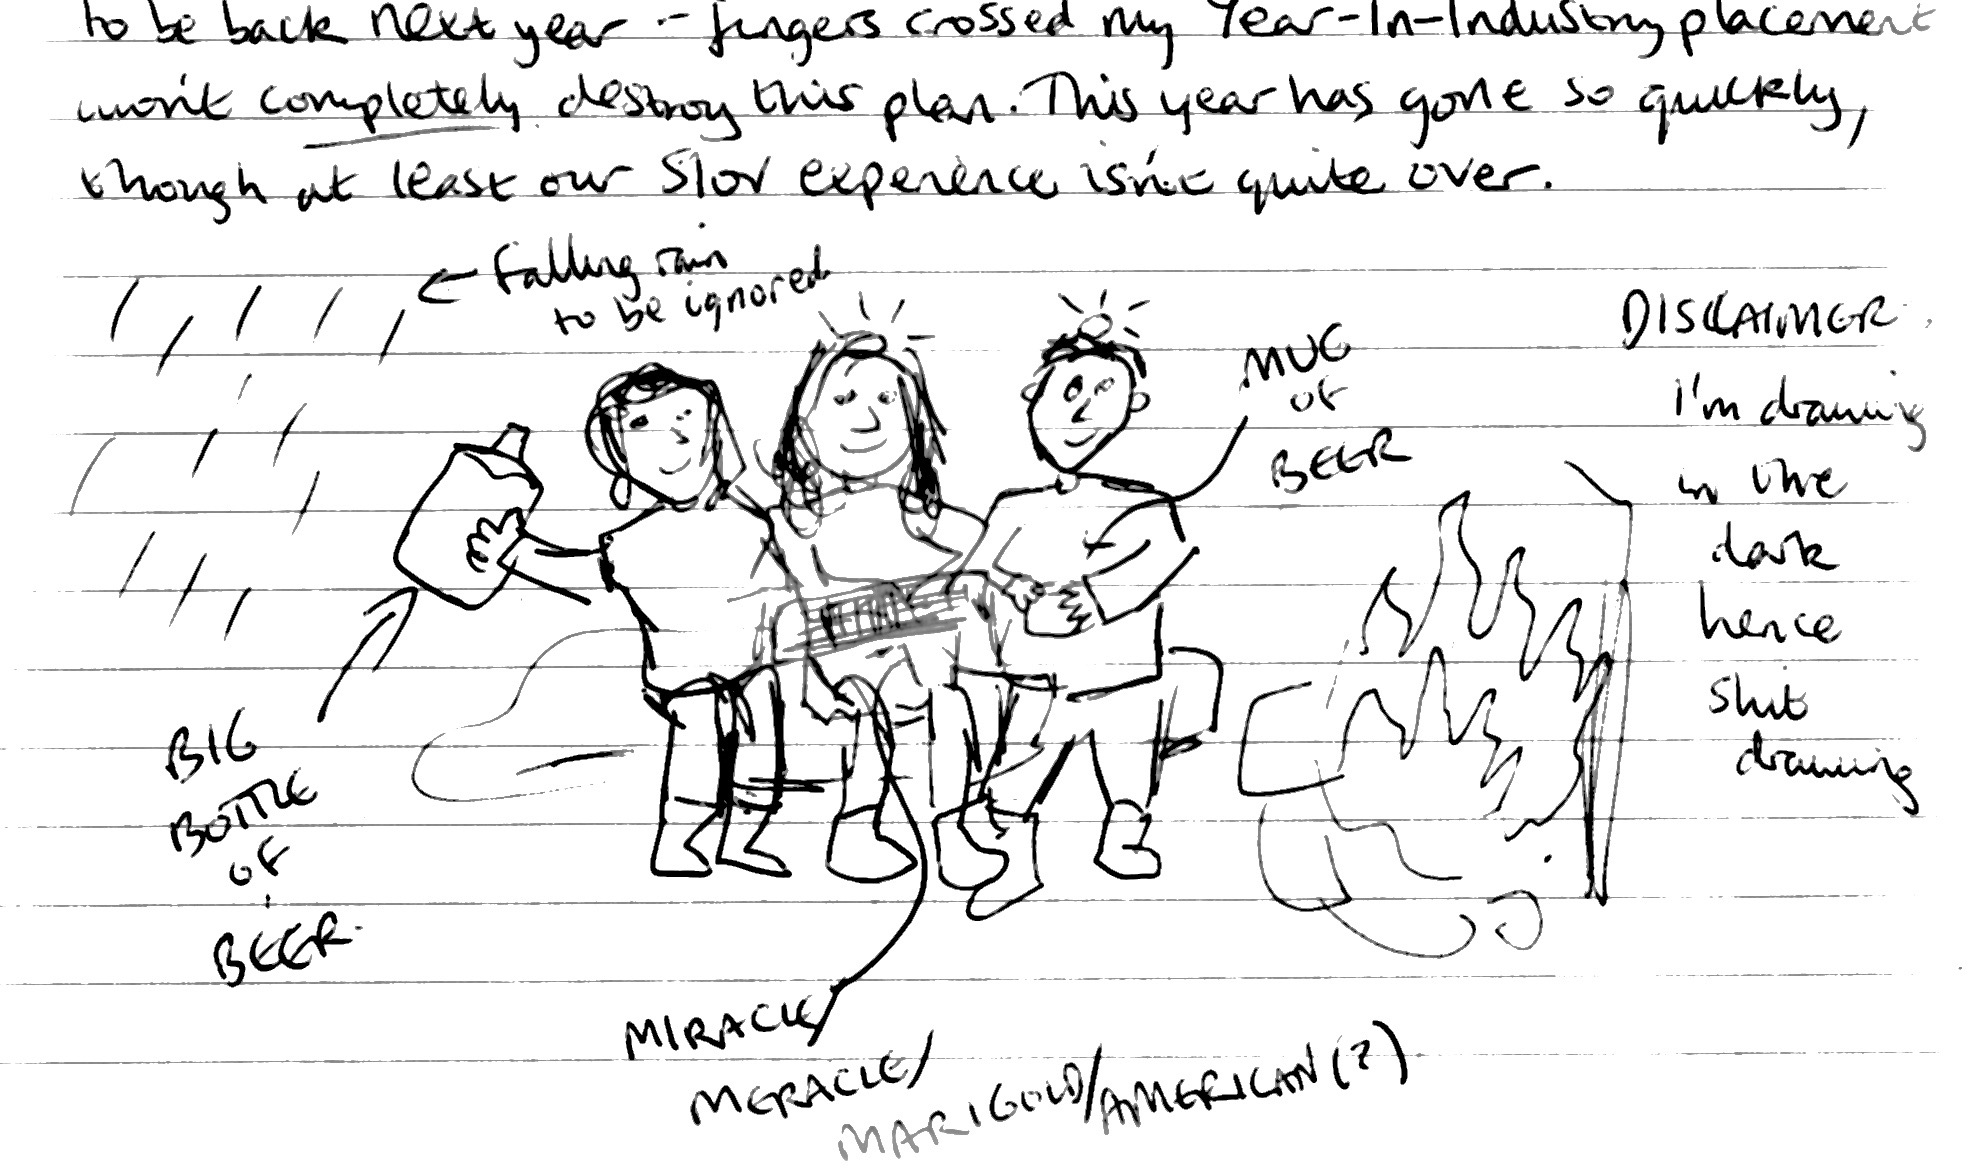 to be back next year - fingers crossed my Year-In-Industry placement
won't completely destroy this plan. This year has gone so quickly,
though at least our Slov experience isn't quite over.
← Falling rain
to be ignored
DISCLAIMER
I'm drawing
in the
dark
hence
shit
drawing
MUG
OF
BEER
BIG
BOTTLE
OF
BEER.
MIRACLE/
MERACLE/
MARIGOLD/AMERICAN(?)